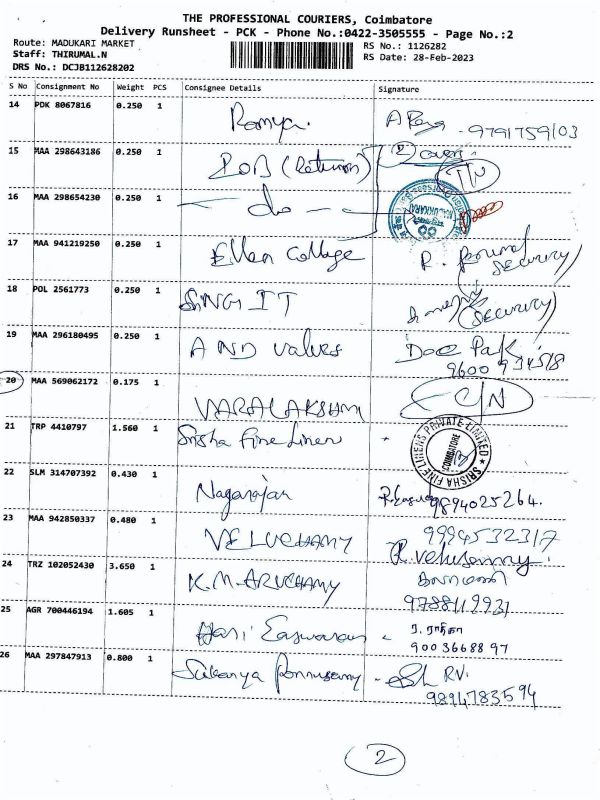 THE PROFESSIONAL COURIERS, Coimbatore
Delivery Runsheet - PCK - Phone No.:0422-3505555 - Page No.:2
Route: MADUKARI MARKET RS No.: 1126282
Staff: THIRUMAL.N RS Date: 28-Feb-2023
DRS No.: DCJB112628202
S No Consignment No Weight PCS Consignee Details Signature
14 PDK 8067816 0.250 1 Ramya.
9791759103
15 MAA 298643186 0.250 1 POB (Return)
16 MAA 298654230 0.250 1 - do -
17 MAA 941219250 0.250 1 Ellen College
SECURITY
18 POL 2561773 0.250 1 SNG IT
(SECURITY)
19 MAA 296180495 0.250 1 AND values
20 MAA 569062172 0.175 1 VARALAKSHMI C/N
21 TRP 4410797 1.560 1 Srisha Fine Linen
SRISHA FINE LINENS PRIVATE LIMITED
COIMBATORE
22 SLM 314707392 0.430 1 Nagarajan 9894025264.
23 MAA 942850337 0.480 1 VELUCHAMY 9994532317
R. Velusamy.
24 TRZ 102052430 3.650 1 K.M. ARUCHAMY
9788112931
25 AGR 700446194 1.605 1 Hari Easwaran ர. ராதிகா
9003668897
26 MAA 297847913 0.800 1 Sukanya Ponnusamy RV.
9894783594
2